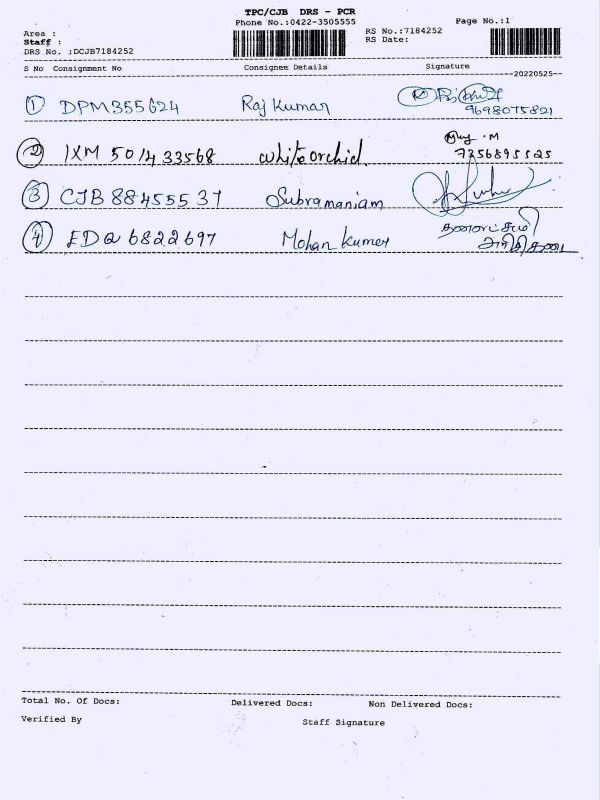 TPC/CJB DRS - PCR
Phone No.:0422-3505555 Page No.:1
Area :
Staff :
DRS No. :DCJB7184252
RS No.:7184252
RS Date:
S No Consignment No Consignee Details Signature
--20220525--
1 DPM355624 Raj Kumar
9698075821
2 IXM 501433568 white orchid M
7356895525
3 CJB 88455537 Subramaniam
4 EDQ 6822697 Mohan Kumar தனலட்சுமி
Total No. Of Docs: Delivered Docs: Non Delivered Docs:
Verified By Staff Signature